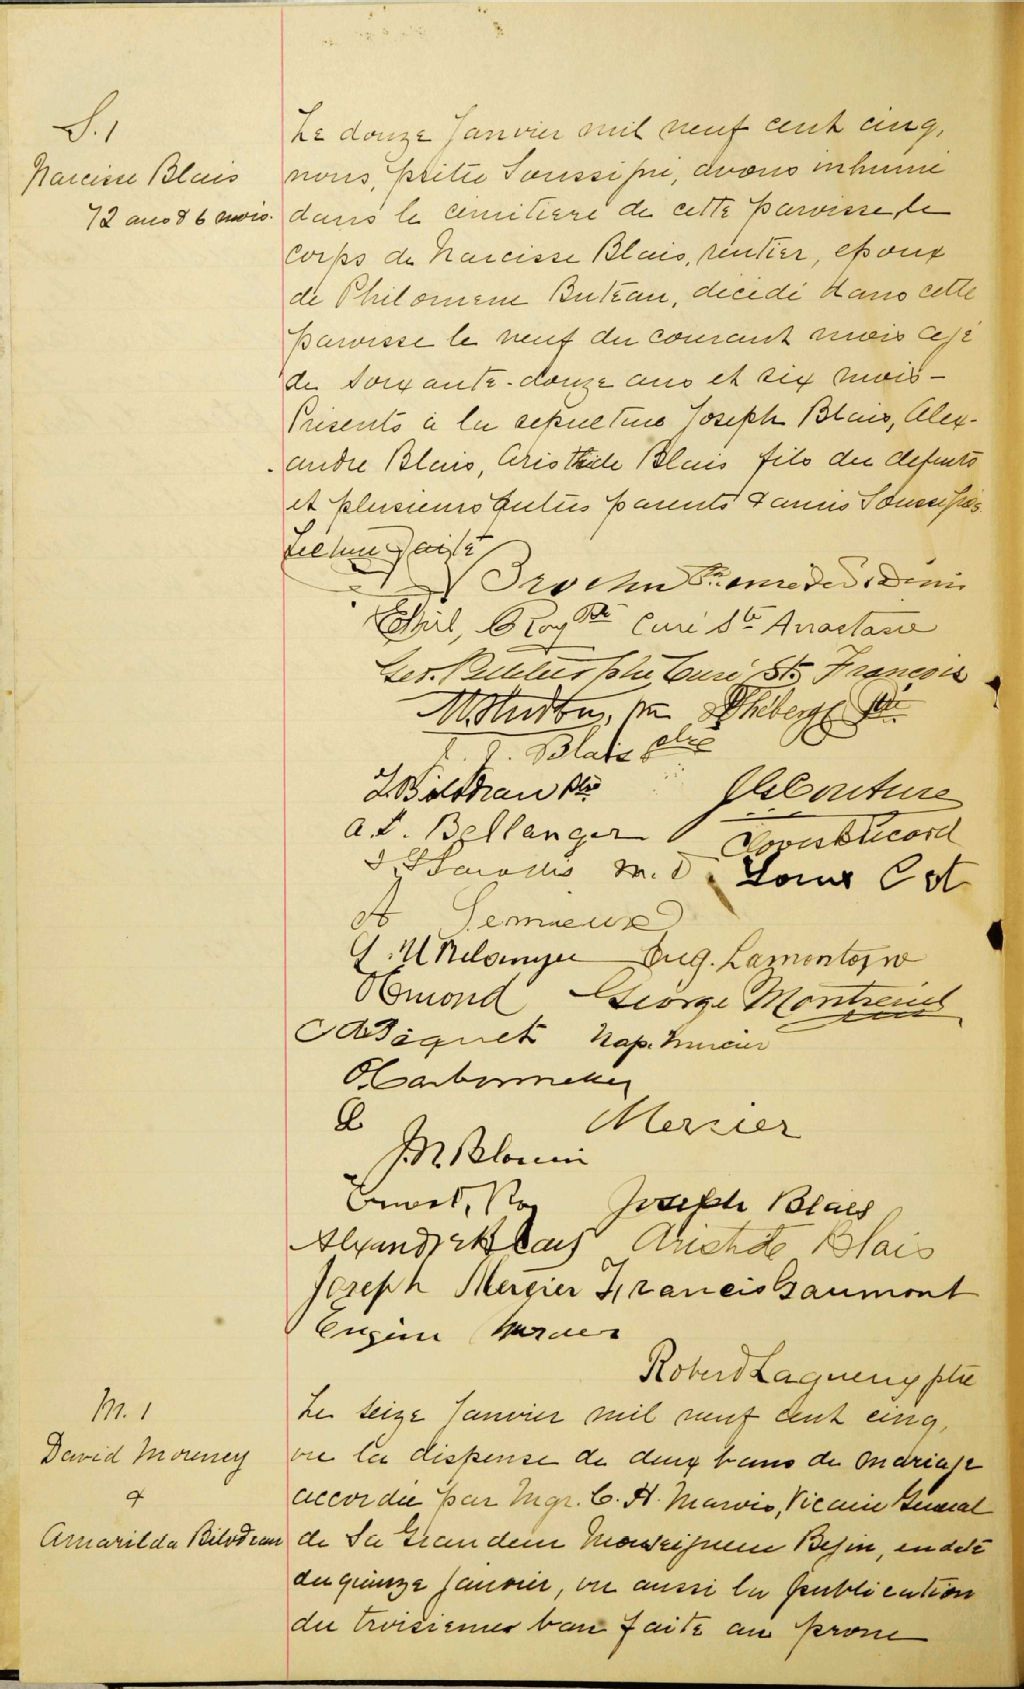 S. 1
Narcisse Blais
72 ans & 6 mois.
Le douze Janvier mil neuf cent cinq,
nous, prêtre Soussigné, avons inhumé
dans le cimitiere de cette paroisse, le
corps de Narcisse Blais, rentier, epoux
de Philomene Buteau, décédé dans cette
paroisse le neuf du courant mois agé
de soixante-douze ans et six mois –
Présents à la sepulture Joseph Blais, Alex-
andre Blais, Aristide Blais fils du defunt
et plusieurs autres parents & amis Soussignés.
Lecture faite
Ptre curé de St Denis
C Roy Ptre Curé Ste Anastasie
Geo. Pelletier ptre Curé St François
Théberge Ptre
J. J. Blais ptre
J. Bilodeau Ptre
J E Couture
A. E. Bellanger
Clovis Ricard
M. D.
Louis Cot
A Lemieux
Belanger
Eug. Lamontagne
O Emond
George Montreuil
A Paquet
Nap. Mercier
O. Carbonneau
E Mercier
J. N. Blouin
Ernest Roy
Joseph Blais
Alexandre Blais
Aristide Blais
Joseph Mercier
Francis Gaumont
Eugène Mercier
Robert Lagueux ptre
M. 1
David Morency
&
Amarilda Bilodeau
Le seize Janvier mil neuf cent cinq,
vu la dispense de deux bans de mariage
accordée par Mgr. C. A. Marois, Vicaire General
de Sa Grandeur Monseigneur Begin, en date
du quinze janvier, vu aussi la publication
du troisieme ban faite au prone